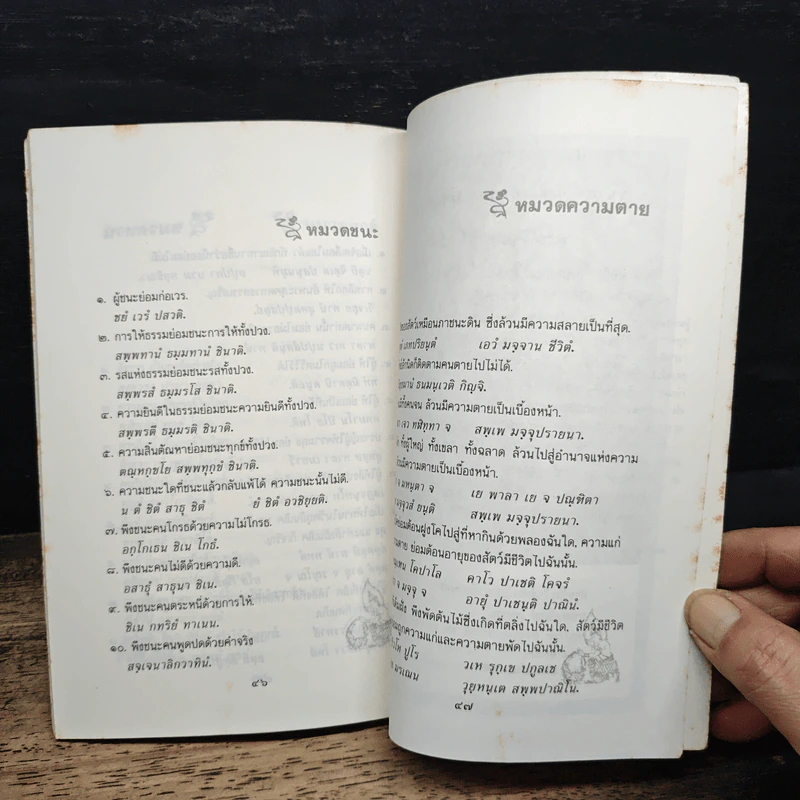 หมวดชนะ
๑. ผู้ชนะย่อมก่อเวร.
ชยํ เวรํ ปสวติ.
๒. การให้ธรรมย่อมชนะการให้ทั้งปวง.
สพฺพทานํ ธมฺมทานํ ชินาติ.
๓. รสแห่งธรรมย่อมชนะรสทั้งปวง.
สพฺพรสํ ธมฺมรโส ชินาติ.
๔. ความยินดีในธรรมย่อมชนะความยินดีทั้งปวง.
สพฺพรตึ ธมฺมรติ ชินาติ.
๕. ความสิ้นตัณหาย่อมชนะทุกข์ทั้งปวง.
ตณฺหกฺขโย สพฺพทุกฺขํ ชินาติ.
๖. ความชนะใดที่ชนะแล้วกลับแพ้ได้ ความชนะนั้นไม่ดี.
น ตํ ชิตํ สาธุ ชิตํ ยํ ชิตํ อวชิยฺยติ.
๗. พึงชนะคนโกรธด้วยความไม่โกรธ.
อกฺโกเธน ชิเน โกธํ.
๘. พึงชนะคนไม่ดีด้วยความดี.
อสาธุํ สาธุนา ชิเน.
๙. พึงชนะคนตระหนี่ด้วยการให้.
ชิเน กทริยํ ทาเนน.
๑๐. พึงชนะคนพูดปดด้วยคำจริง
สจฺเจนาลิกวาทินํ.
๔๖
หมวดความตาย
ของสัตว์เหมือนภาชนะดิน ซึ่งล้วนมีความสลายเป็นที่สุด.
เภทปริยนฺตํ เอวํ มจฺจาน ชีวิตํ.
นิดก็ติดตามคนตายไปไม่ได้.
ธนมนฺเวติ กิญฺจิ.
ทั้งคนจน ล้วนมีความตายเป็นเบื้องหน้า.
ทฬิทฺทา จ สพฺเพ มจฺจุปรายนา.
ที่ผู้ใหญ่ ทั้งเขลา ทั้งฉลาด ล้วนไปสู่อำนาจแห่งความ
มีความตายเป็นเบื้องหน้า.
มหนฺตา จ เย พาลา เย จ ปณฺฑิตา
มจฺจุวสํ ยนฺติ สพฺเพ มจฺจุปรายนา.
ย่อมต้อนฝูงโคไปสู่ที่หากินด้วยพลองฉันใด. ความแก่
ตาย ย่อมต้อนอายุของสัตว์มีชีวิตไปฉันนั้น.
โคปาโล คาโว ปาเชติ โคจรํ
จ มจฺจุ จ อายุํ ปาเชนฺติ ปาณินํ.
ฝั่ง พึงพัดต้นไม้ซึ่งเกิดที่ตลิ่งไปฉันใด. สัตว์มีชีวิต
ถูกความแก่และความตายพัดไปฉันนั้น.
ปูโร วเห รุกฺเข ปกูลเช
มรเณน วุยฺหนฺเต สพฺพปาณิโน.
๔๗